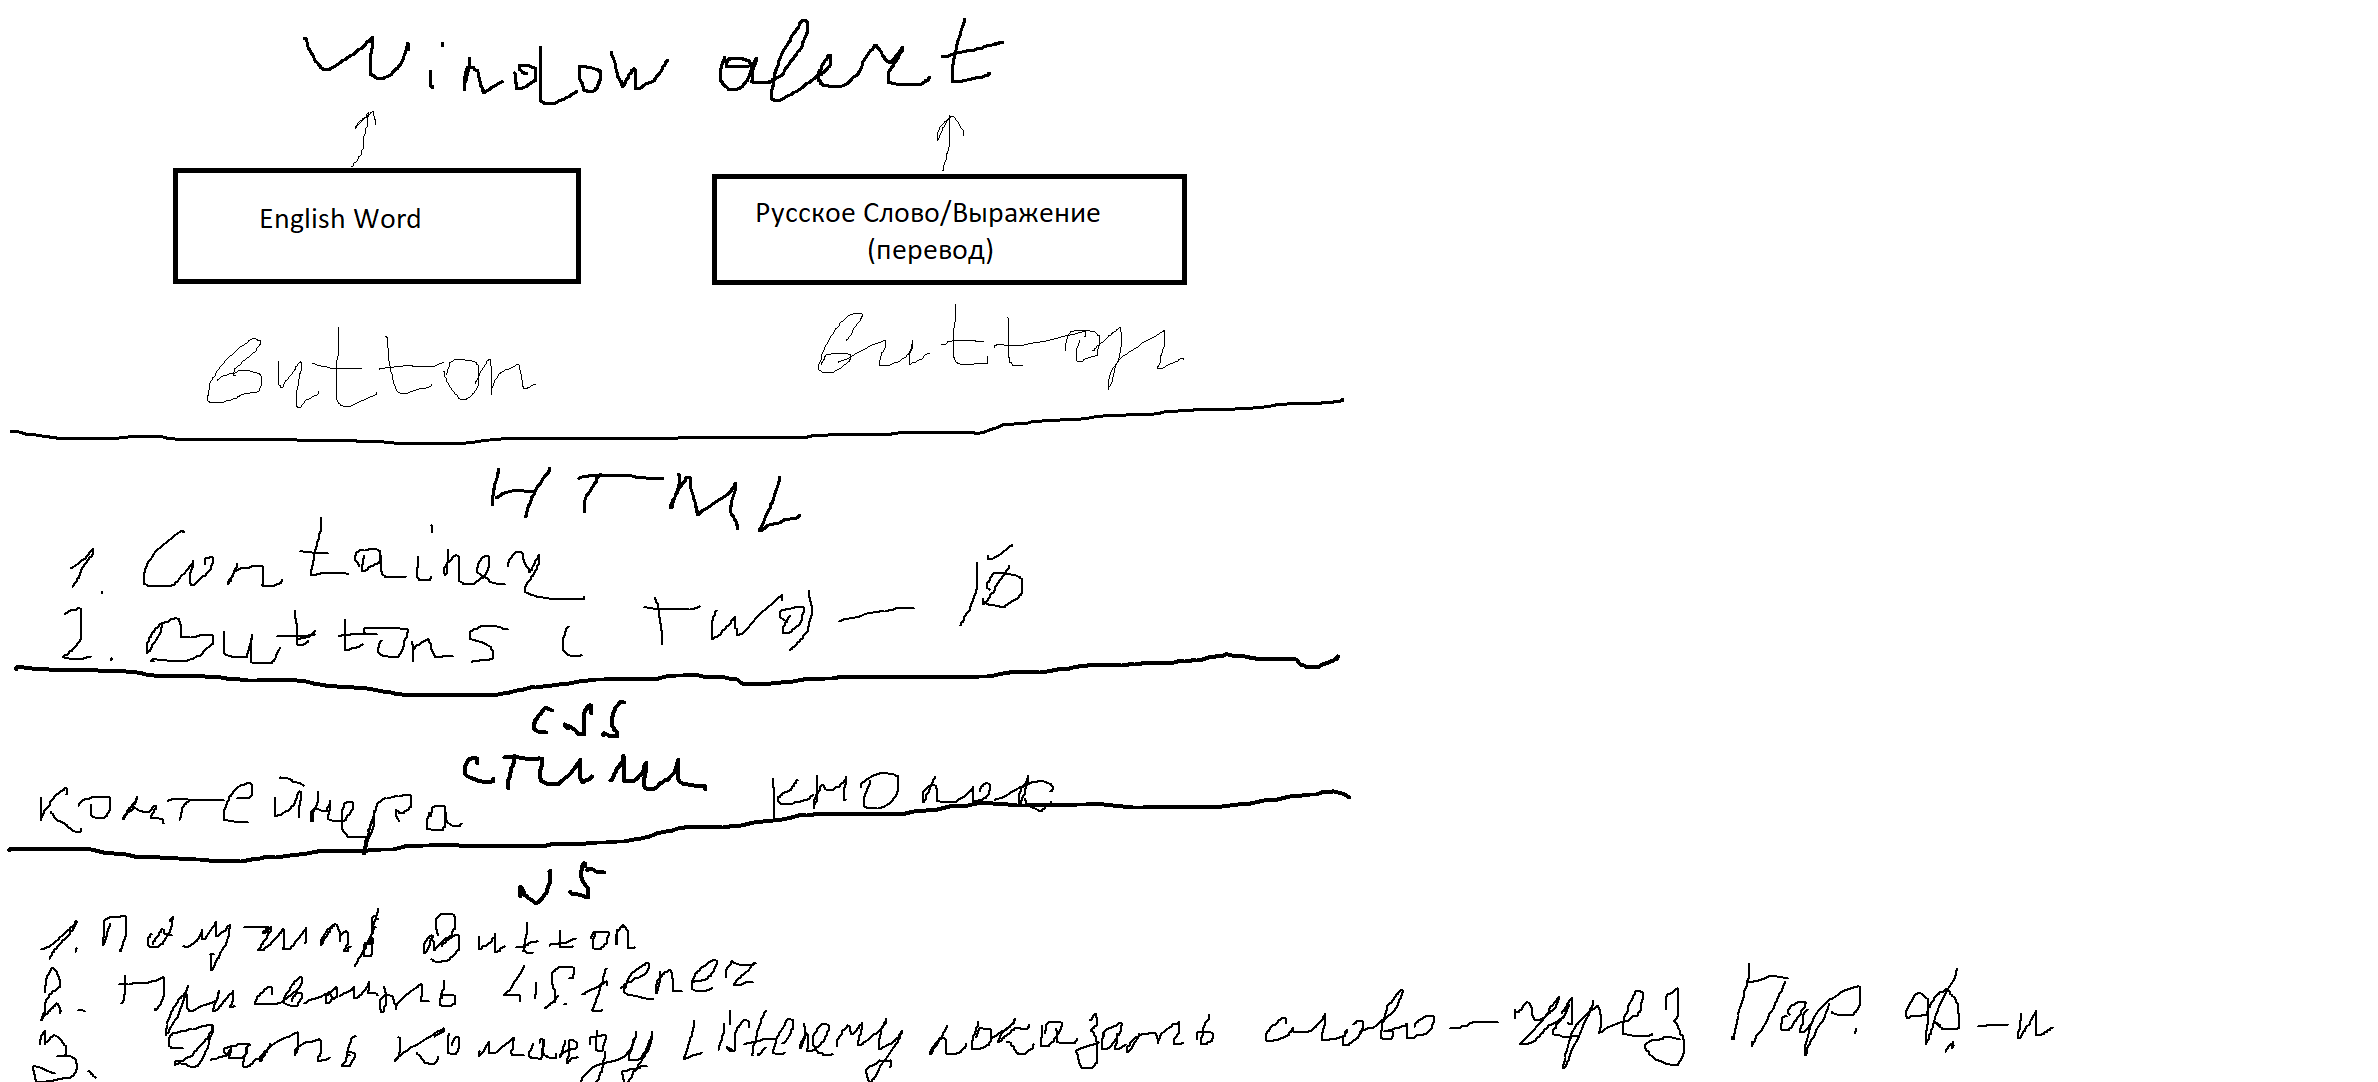 Window alert
English Word
Русское Слово/Выражение
(перевод)
Button
Button
HTML
1. Container
2. Buttons ( two) —
CSS
стили
контейнера кнопок
JS
1. Получить Button
2. Присвоить Listener
3. Дать команду Listenerу показать слово — через Пар. Ф.-и